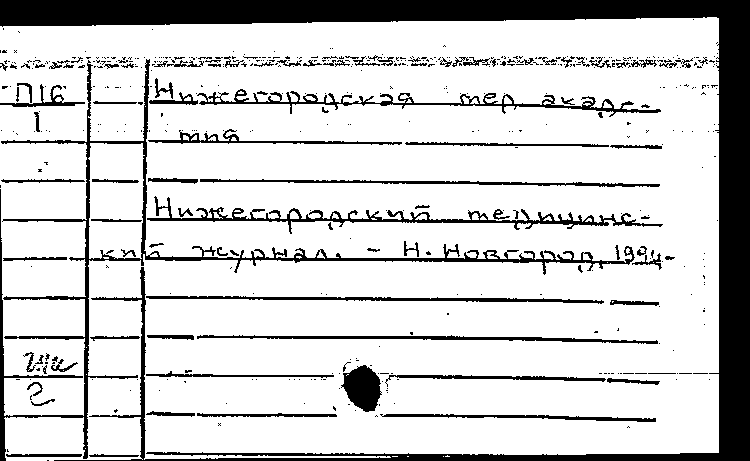 П16
1
Нижегородская мед акаде-
мия
Нижегородский медицинс-
кий журнал. - Н. Новгород, 1994-
2